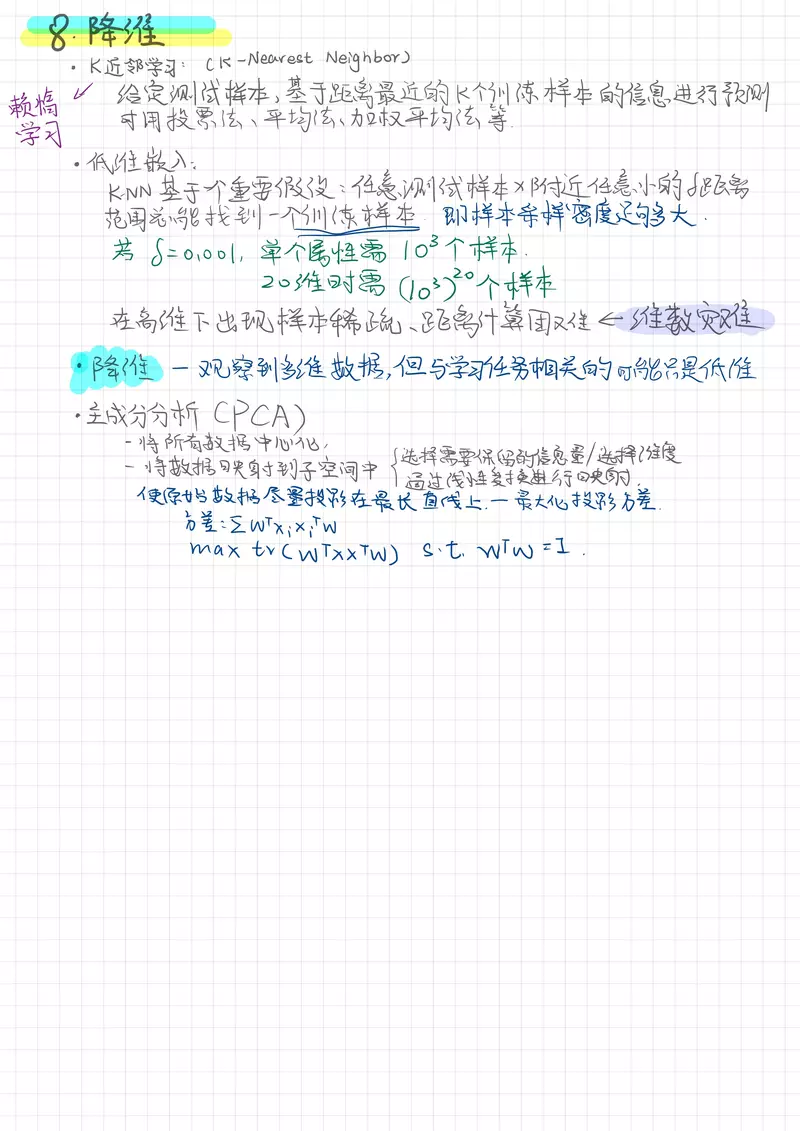 8. 降维
· K近邻学习: (K-Nearest Neighbor)
懒惰学习
给定测试样本, 基于距离最近的K个训练样本的信息进行预测
可用投票法、平均法、加权平均法等.
· 低维嵌入:
KNN基于个重要假设: 任意测试样本x附近任意小的δ距离
范围总能找到一个训练样本. 即样本采样密度足够大.
若 δ=0.001, 单个属性需 10³个样本.
20维时需 (10³)²⁰个样本
在高维下出现样本稀疏、距离计算困难 ← 维数灾难
· 降维 — 观察到多维数据, 但与学习任务相关的可能只是低维
· 主成分分析 (PCA)
- 将所有数据中心化,
- 将数据映射到子空间中 { 选择需要保留的信息量/选择维度
通过线性变换进行映射.
使原始数据尽量投影在最长直线上. — 最大化投影方差.
方差: ΣWᵀxᵢxᵢᵀW
max tr(WᵀXXᵀW) s.t. WᵀW = I.